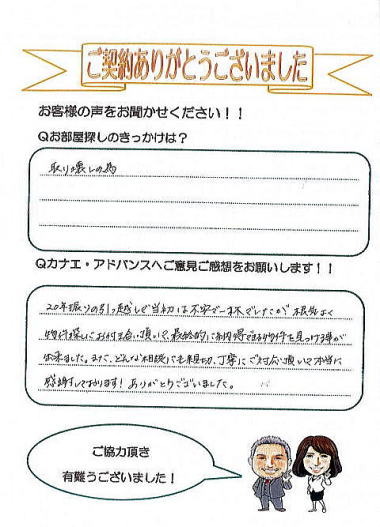 ご契約ありがとうございました
お客様の声をお聞かせください！！
Qお部屋探しのきっかけは？
取り壊しの為
Qカナエ・アドバンスへご意見ご感想をお願いします！！
20年振りの引っ越しで当初は不安で一杯でしたが根気よく
物件探しにお付き合い頂いて、最終的に納得できる物件を見つける事が
出来ました。また、どんな相談にも親切、丁寧にご対応頂いて本当に
感謝しております！ありがとうございました。
ご協力頂き
有難うございました！